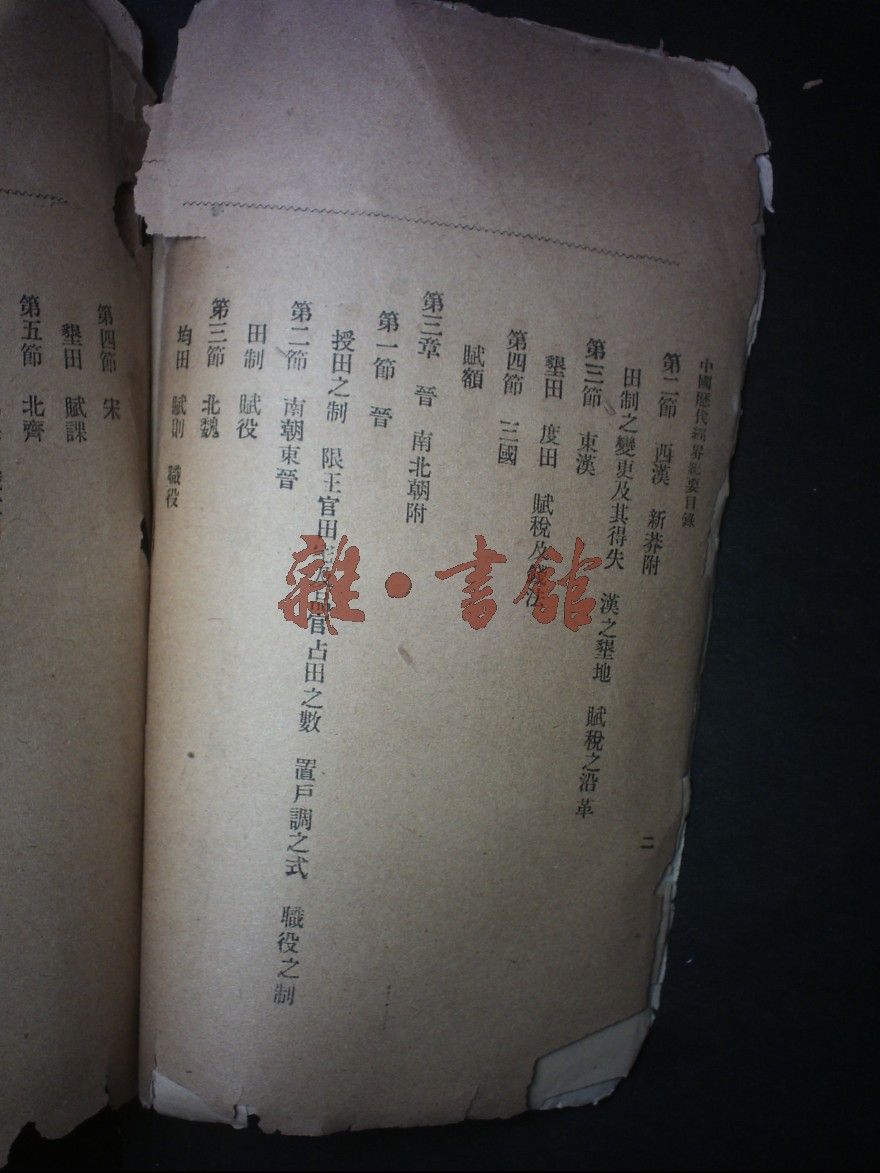 中國歷代經界紀要目錄
第二節　西漢　新莽附
田制之變更及其得失　漢之墾地　賦稅之沿革
二
第三節　東漢
墾田　度田　賦稅及錢法
第四節　三國
賦額
第三章　晉　南北朝附
第一節　晉
授田之制　限王官田宅及品官占田之數　置戶調之式　職役之制
第二節　南朝東晉
田制　賦役
第三節　北魏
均田　賦則　職役
第四節　宋
墾田　賦課
第五節　北齊
雜·書館